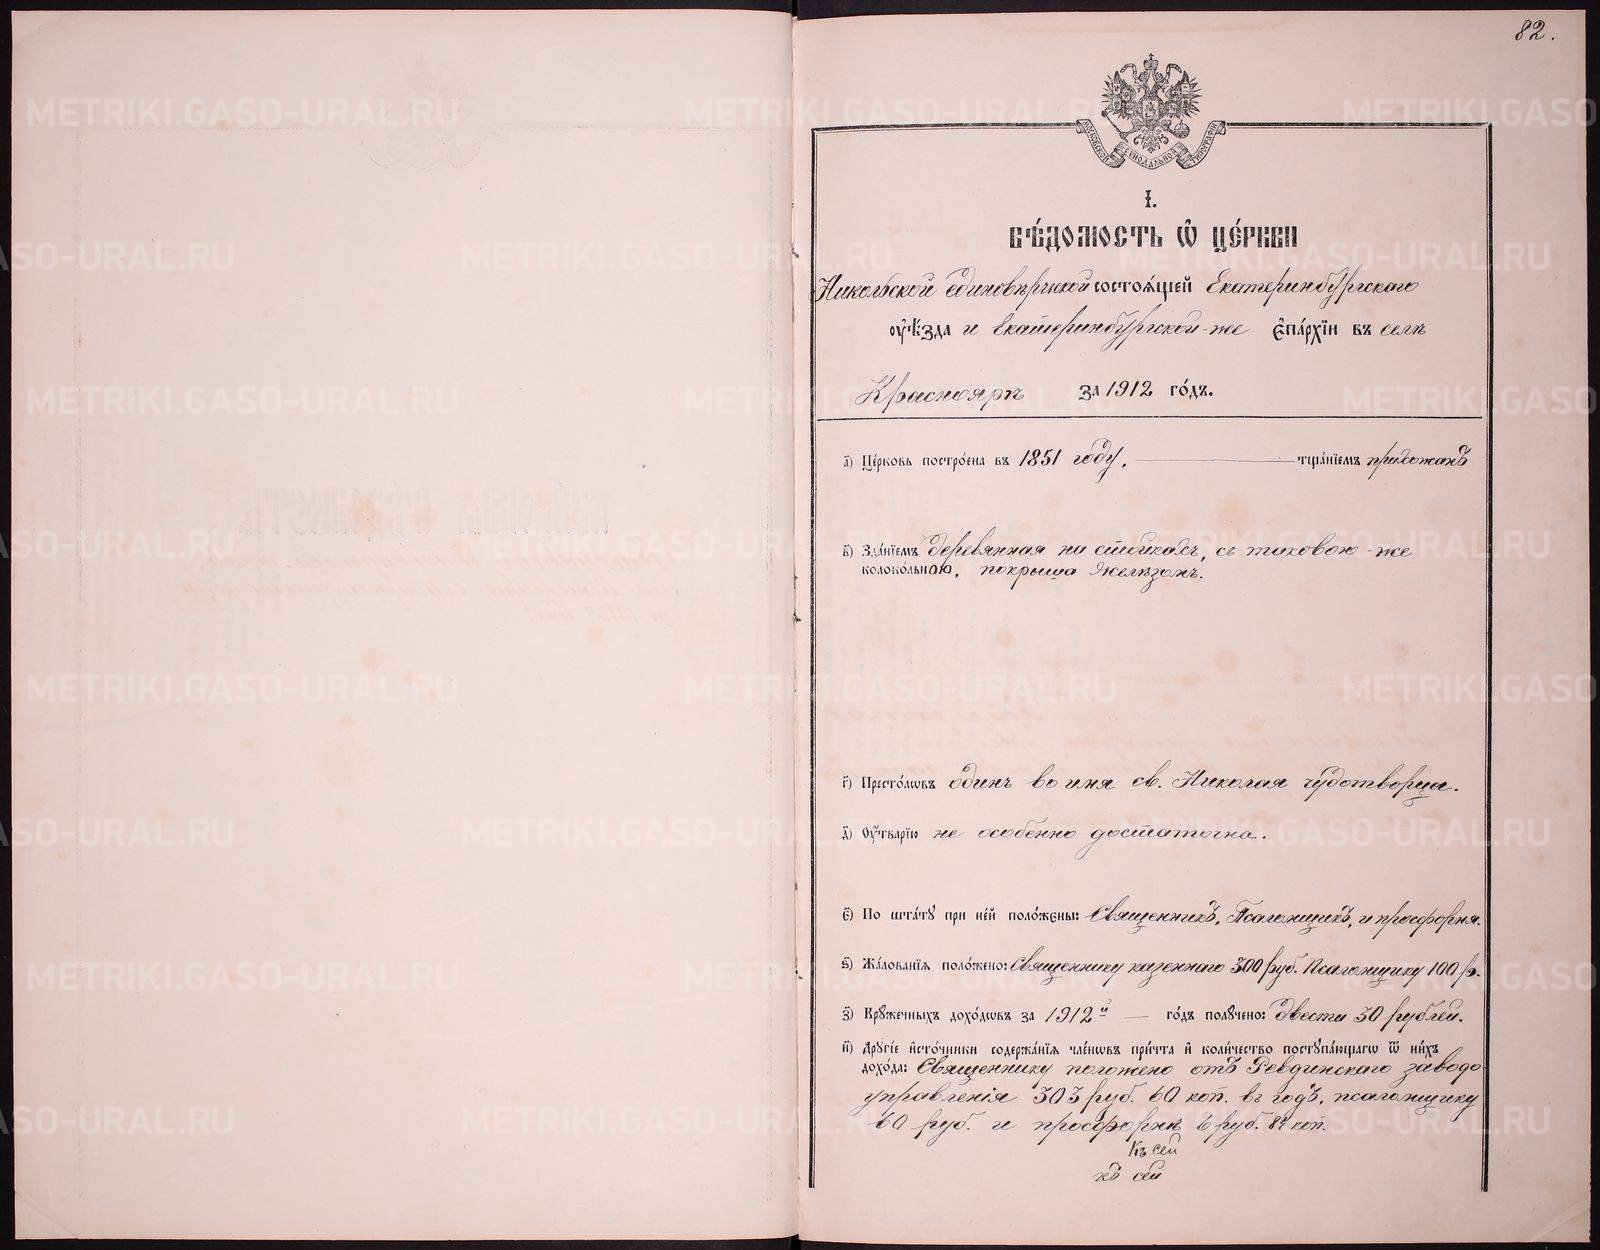 82.
МОСКОВСКОЙ СѴНОДАЛЬНОЙ ТИПОГРАФІИ
І.
ВѢ́ДОМОСТЬ Ѽ ЦЕ́РКВИ
Никольской единовѣрческой состоѧ́щей Екатеринбургскаго
оуѣ́зда и Екатеринбургской-же єпа́рхїи въ селѣ
Краснояръ за 1912 го́дъ.
а҃) Це́рковь постро́ена въ 1851 году, — тща́нїемъ прихожанъ
в҃) Зда́нїемъ деревянная на стойкахъ, съ таковою-же
колоко́льною, покрыта желѣзомъ.
г҃) Престо́лѡвъ одинъ во имя св. Николая чудотворца.
д҃) Оу҆́тварїю не особенно достаточна.
є҃) По шта́тꙋ при не́й поло́жены: Священникъ, Псаломщикъ, и просфорня.
ѕ҃) Жа́лованїѧ поло́жено: Священнику казеннаго 300 руб. Псаломщику 100 р.
з҃) Крꙋ́жечныхъ дохо́дѡвъ за 1912й — го́дъ полꙋ́чено: Двести 30 рублей.
и҃) Дрꙋгі́е и҆сто́чники содержа́нїѧ чле́нѡвъ при́чта и҆ коли́чество постꙋпа́ющагѡ ѿ ни́хъ
дохо́да: Священнику положено отъ Ревдинскаго заводо
управленія 303 руб. 60 коп. въ годъ, псаломщику
60 руб. и просфорнѣ 6 руб. 84 коп.
Къ сей
къ сей
METRIKI.GASO-URAL.RU